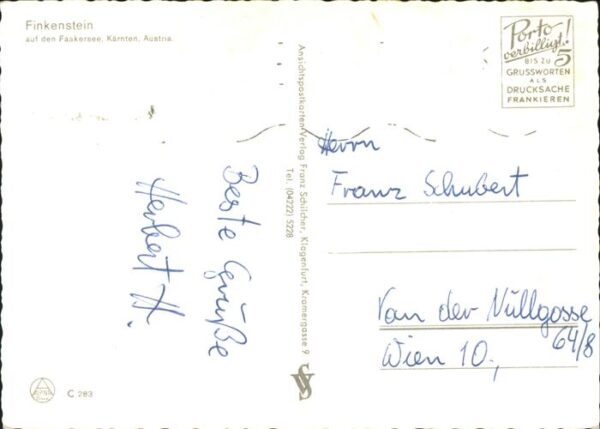 Finkenstein
auf den Faakersee, Kärnten, Austria.
Porto
verbilligt!
BIS ZU 5
GRUSSWORTEN
ALS
DRUCKSACHE
FRANKIEREN
Beste Grüße
Herbert H.
Ansichtspostkarten-Verlag Franz Schilcher, Klagenfurt, Kramergasse 9
Tel. (04222) 5228
Herrn
Franz Schubert
Van der Nüllgasse
64/8
Wien 10,
C 283